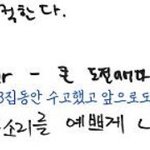 적한다.
- 큰 도전해마
3집동안 수고했고 앞으로도
소리를 예쁘게 니